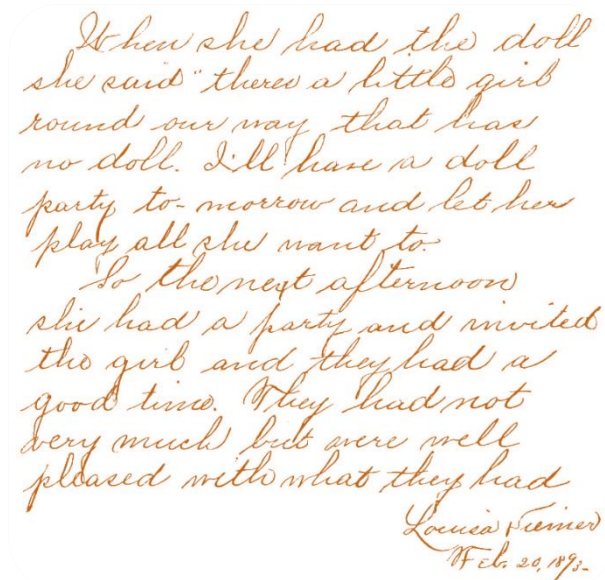 When she had the doll
she said "theres a little girl
round our way that has
no doll. I'll have a doll
party to-morrow and let her
play all she want to.
So the next afternoon
she had a party and invited
the girl and they had a
good time. They had not
very much but were well
pleased with what they had
Louisa
Feb. 20, 1893-